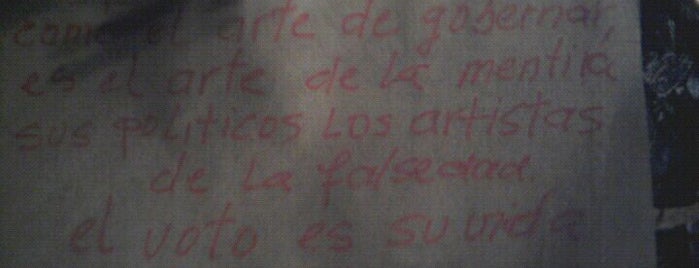 como el arte de gobernar,
es el arte de la mentira
sus politicos los artistas
de la falsedad.
el voto es su vida